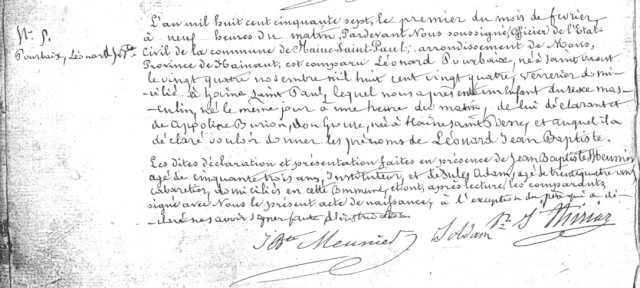 L'an mil huit cent cinquante sept, le premier du mois de février
N° 8.
à neuf heures du matin, Pardevant Nous soussigné, Officier de l'Etat-
Pourbaix, Léonard Jn Bte
Civil de la commune de Haine-Saint-Paul, arrondissement de Mons,
Province de Hainaut, est comparu Léonard Pourbaix, né à Saint Vaast
le vingt quatre novembre mil huit cent vingt quatre, verrerier do mi-
cilié à Haine Saint Paul, lequel nous a présenté un Enfant du sexe mas-
culin, né le même jour à une heure du matin, de lui déclarant et
de Appoline Burion, son Epouse, née à Haine Saint Pierre, et auquel il a
déclaré vouloir donner les prénoms de Léonard Jean Baptiste.
Les dites déclaration et présentation faites en présence de Jean Baptiste Meunier
agé de cinquante trois ans, Instituteur, et de Jules Adam, agé de trente quatre ans
cabaretier, domiciliés en cette Commune, et ont, après lecture, les comparants
signé avec Nous le présent acte de naissance, à l'exception du père qui a dé-
claré ne savoir signer faute d'instruction
J Bte Meunier J Adam